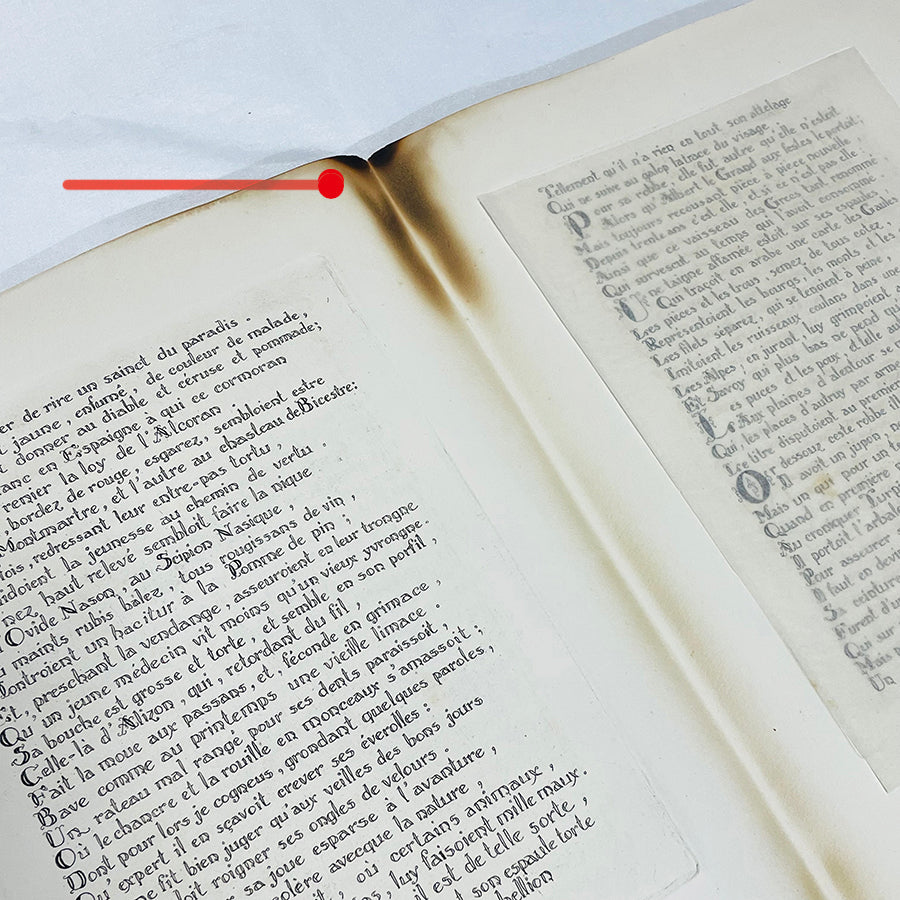 de rire un sainct du paradis .
jaune, enfumé, de couleur de malade,
donner au diable et céruse et pommade;
en Espaigne à qui ce cormoran
renier la loy de l'Alcoran
, bordez de rouge, esgarez, sembloient estre
Montmartre, et l'autre au chasteau de Bicestre:
fois, redressant leur entre-pas tortu ,
la jeunesse au chemin de vertu .
nez, haut relevé sembloit faire la nique
Ovide Nason, au Scipion Nasique ,
maints rubis balez, tous rougissans de vin ,
un hacitur à la Pomme de pin ;
Et, preschant la vendange, asseuroient en leur trongne
Qu'un jeune médecin vit moins qu'un vieux yvrongne.
Sa bouche est grosse et torte, et semble en son porfil ,
Celle-là d'Alizon, qui, retordant du fil ,
Fait la moue aux passans, et, féconde en grimace ,
Bave comme au printemps une vieille limace .
Un rateau mal rangé pour ses dents paraissoit ,
Où le chancre et la rouille en monceaux s'amassoit ;
Dont pour lors je cogneus, grondant quelques paroles,
Qu'expert il en sçavoit crever ses everolles :
fit bien juger qu'aux veilles des bons jours
roigner ses ongles de velours .
sa joue esparse à l'avanture ,
colère avecque la nature ;
, ou certains animaux ,
luy faisoient mille maux.
il est de telle sorte ,
son espaule torte
Tellement qu'il n'a rien en tout son attelage
Qui ne suive au galop la trace du visage .
Pour sa robbe, elle fut autre qu'elle n'estoit
Alors qu'Albert le Grand aux festes la portoit;
Mais toujours recousant pièce à pièce nouvelle
Depuis trente ans c'est elle, et si ce n'est pas elle :
Ainsi que ce vaisseau des Grecs tant renommé
Qui survescut, au temps qui l'avoit consommé
Une taigne affamée estoit sur ses espaules
Qui traçoit en arabe une carte des Gaules
Les pièces et les trous, semez de tous costez ,
Représentoient les bourgs, les monts et les
Les filets séparez, qui se tenoient à peine ,
Imitoient les ruisseaux coulans dans une
Les Alpes, en jurant, luy grimpoient
Et Savoy' qui plus bas ne pend
Les puces et les poux, et telle
Aux plaines d'alentour se
Qui les places d'autruy par
Les titre disputoient au premier
Or dessouz ceste robbe
Il avoit un jupon,
Mais un qui pour un
Quand en première
Au croniquer Turpin
Il portoit
Pour asseurer
Il faut en
Sa ceinture
Furent d'un
Que sur
Mais
Un